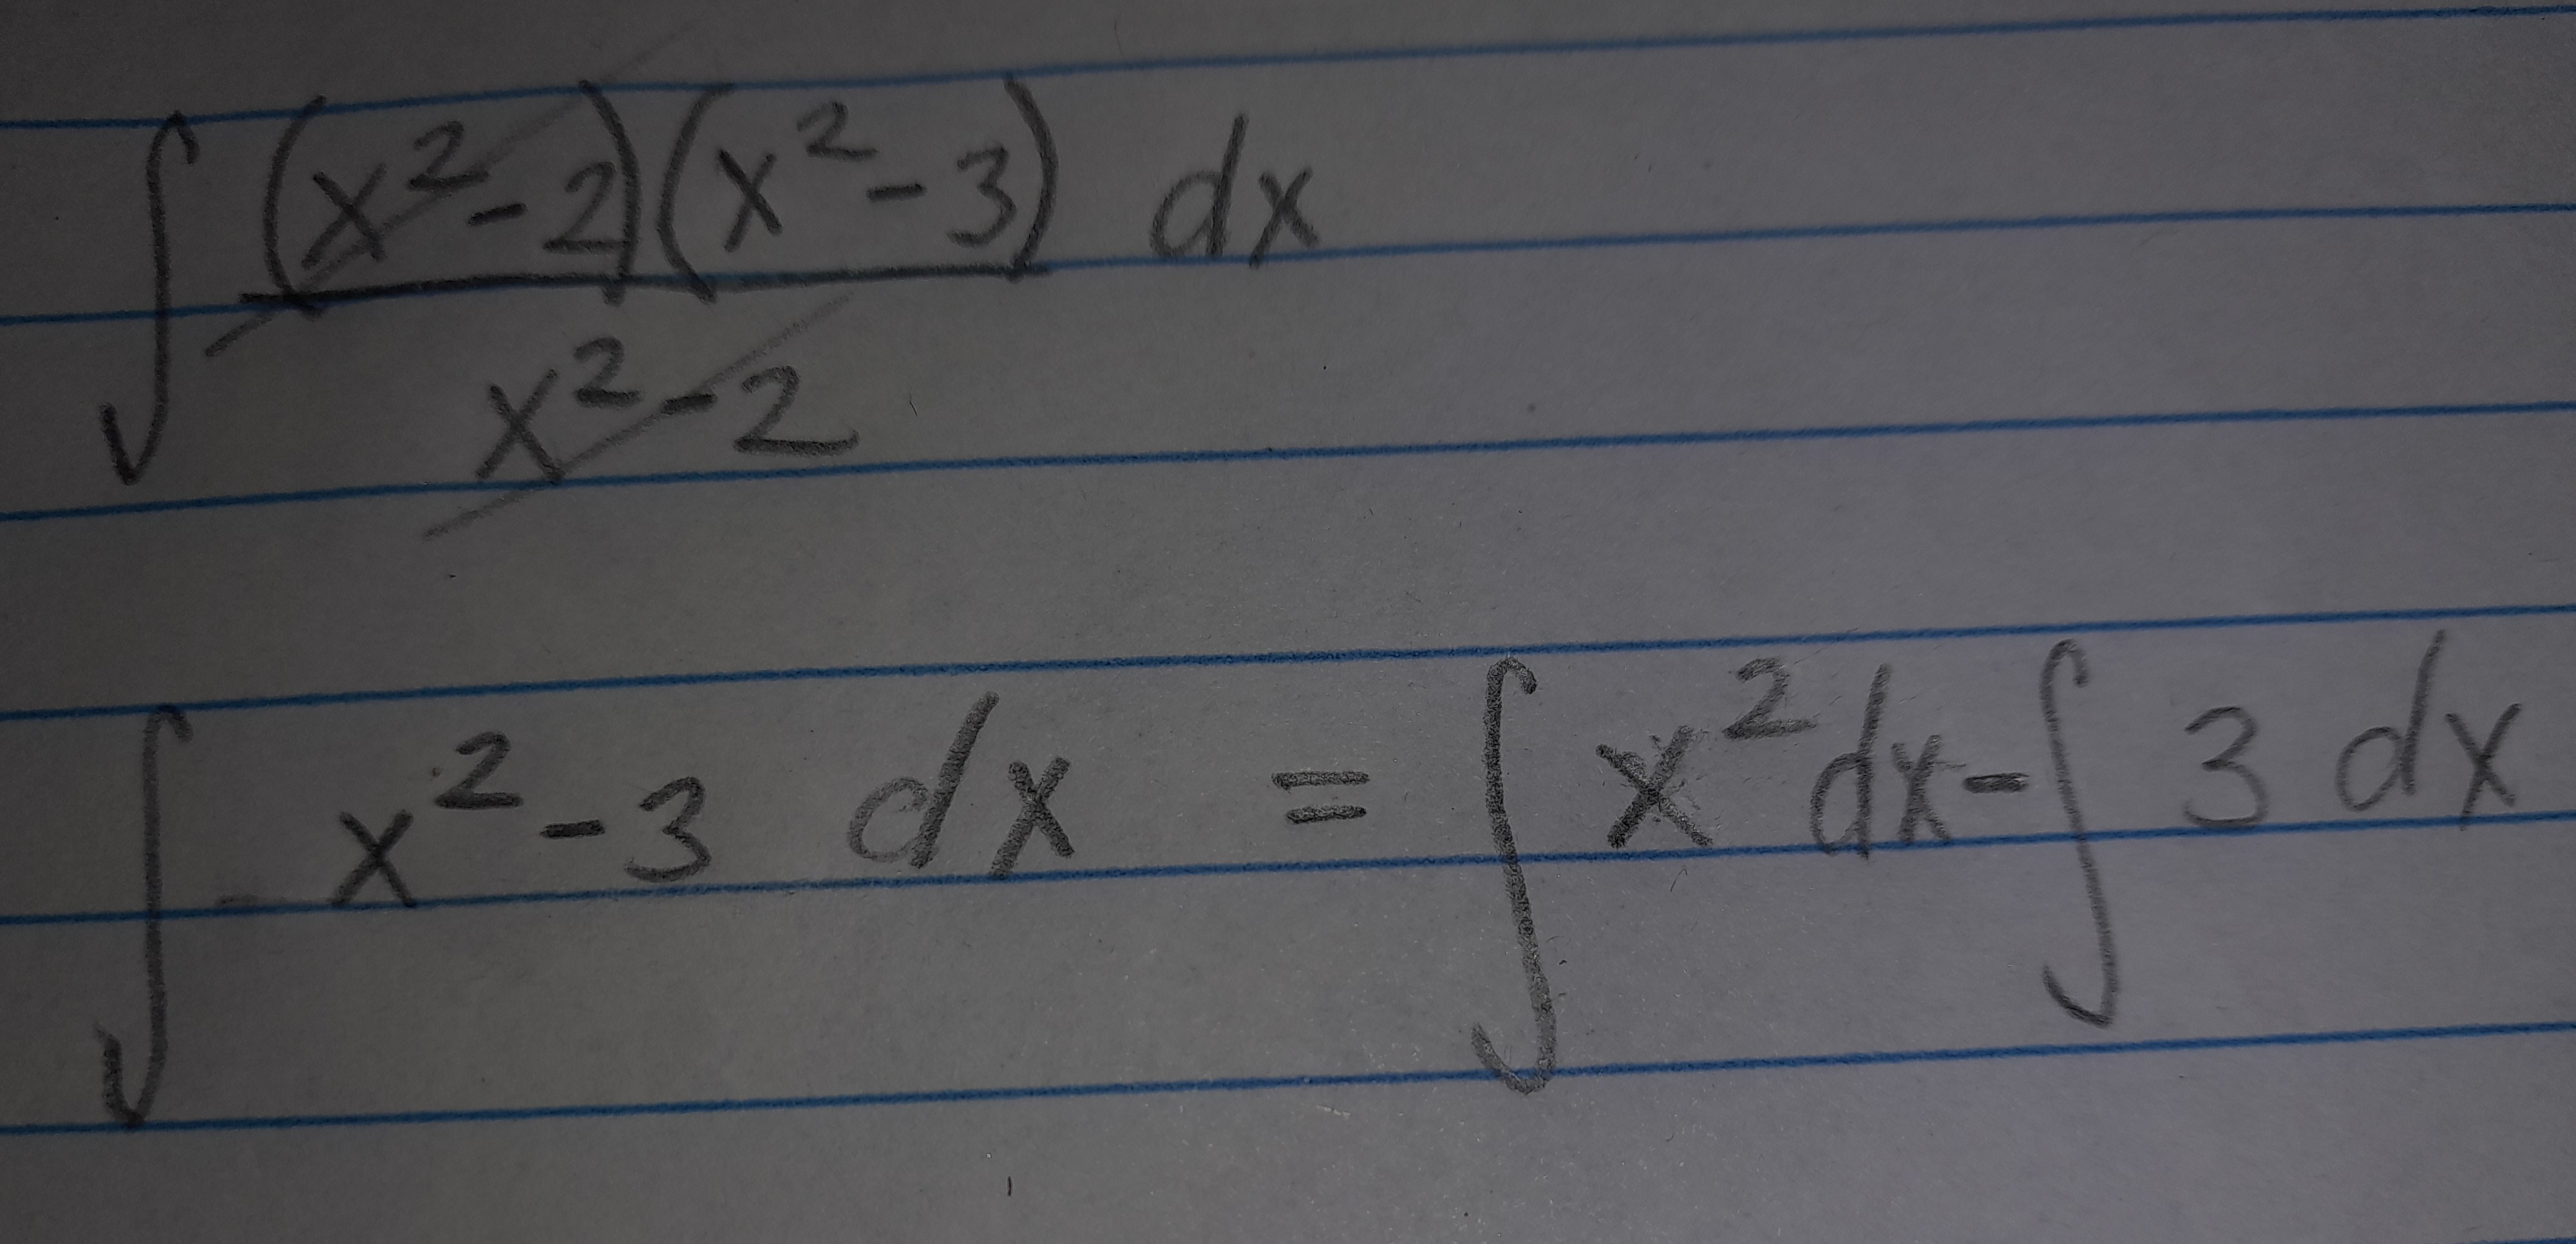 ∫ (x² - 2)(x² - 3) / x² - 2 dx
∫ x² - 3 dx = ∫ x² dx - ∫ 3 dx